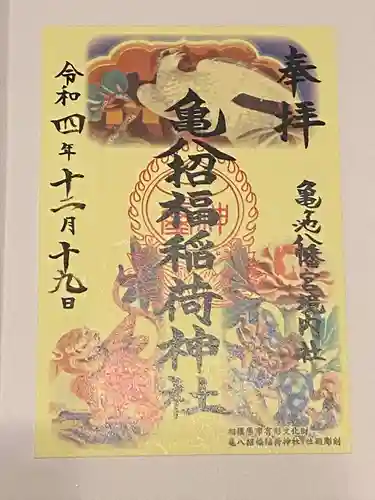 奉拝
亀ヶ池八幡宮境内社
亀八招福稲荷神社
令和四年十二月十九日
相模原市有形文化財
亀八招福稲荷神社 社殿彫刻